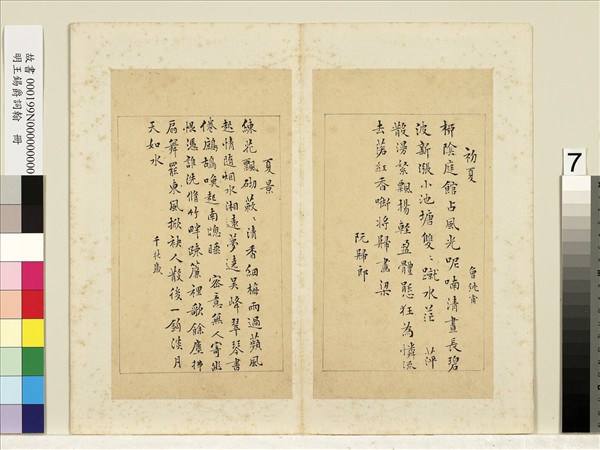 初夏
曾純甫
柳陰庭館占風光呢喃清晝長碧
波新漲小池塘雙〻蹴水茫 萍
散漫絮飄揚輕盈體態狂為憐流
去落紅香啣將歸畫梁
阮歸郎
夏景
練花飄砌蔌〻清香細梅雨過蘋風
起情隨烟水湘遠夢遶吳峰翠琴書
倦鷓鴣喚起南窻睡 密意無人寄幽
恨憑誰洗脩竹畔疎簾裡歌餘塵拂
扇舞罷東風掀袂人散後一鉤淡月
天如水
千秋歲
故書 000199N000000000
明王錫爵詞翰 冊
7